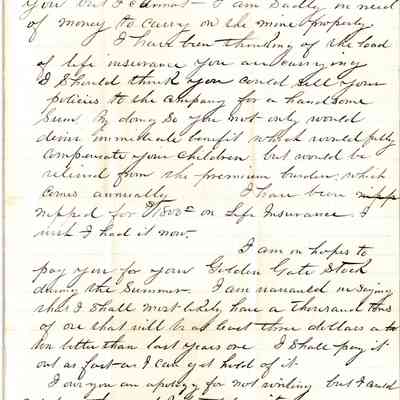 you but I cannot - I am Sadly in need
of money to carry on the mine properly.
I have been thinking of the load
of life insurance you are carrying
I Should think you could sell your
policies to the company for a handsome
Sum. By doing So you not only would
derive immediate benefit which would fully
compensate your children, but would be
relieved from the premium burden, which
comes annually. I have been
nipped for $1800 on Life Insurance I
wish I had it now.
I am in hopes to
pay you for your Golden Gate Stock
during the Summer. I am warranted in saying
that I shall most likely have a thousand tons
of ore that will be at least three dollars a ton
better than last years ore I Shall pay it
out as fast as I can get hold of it.
I owe you an apology for not writing but I could